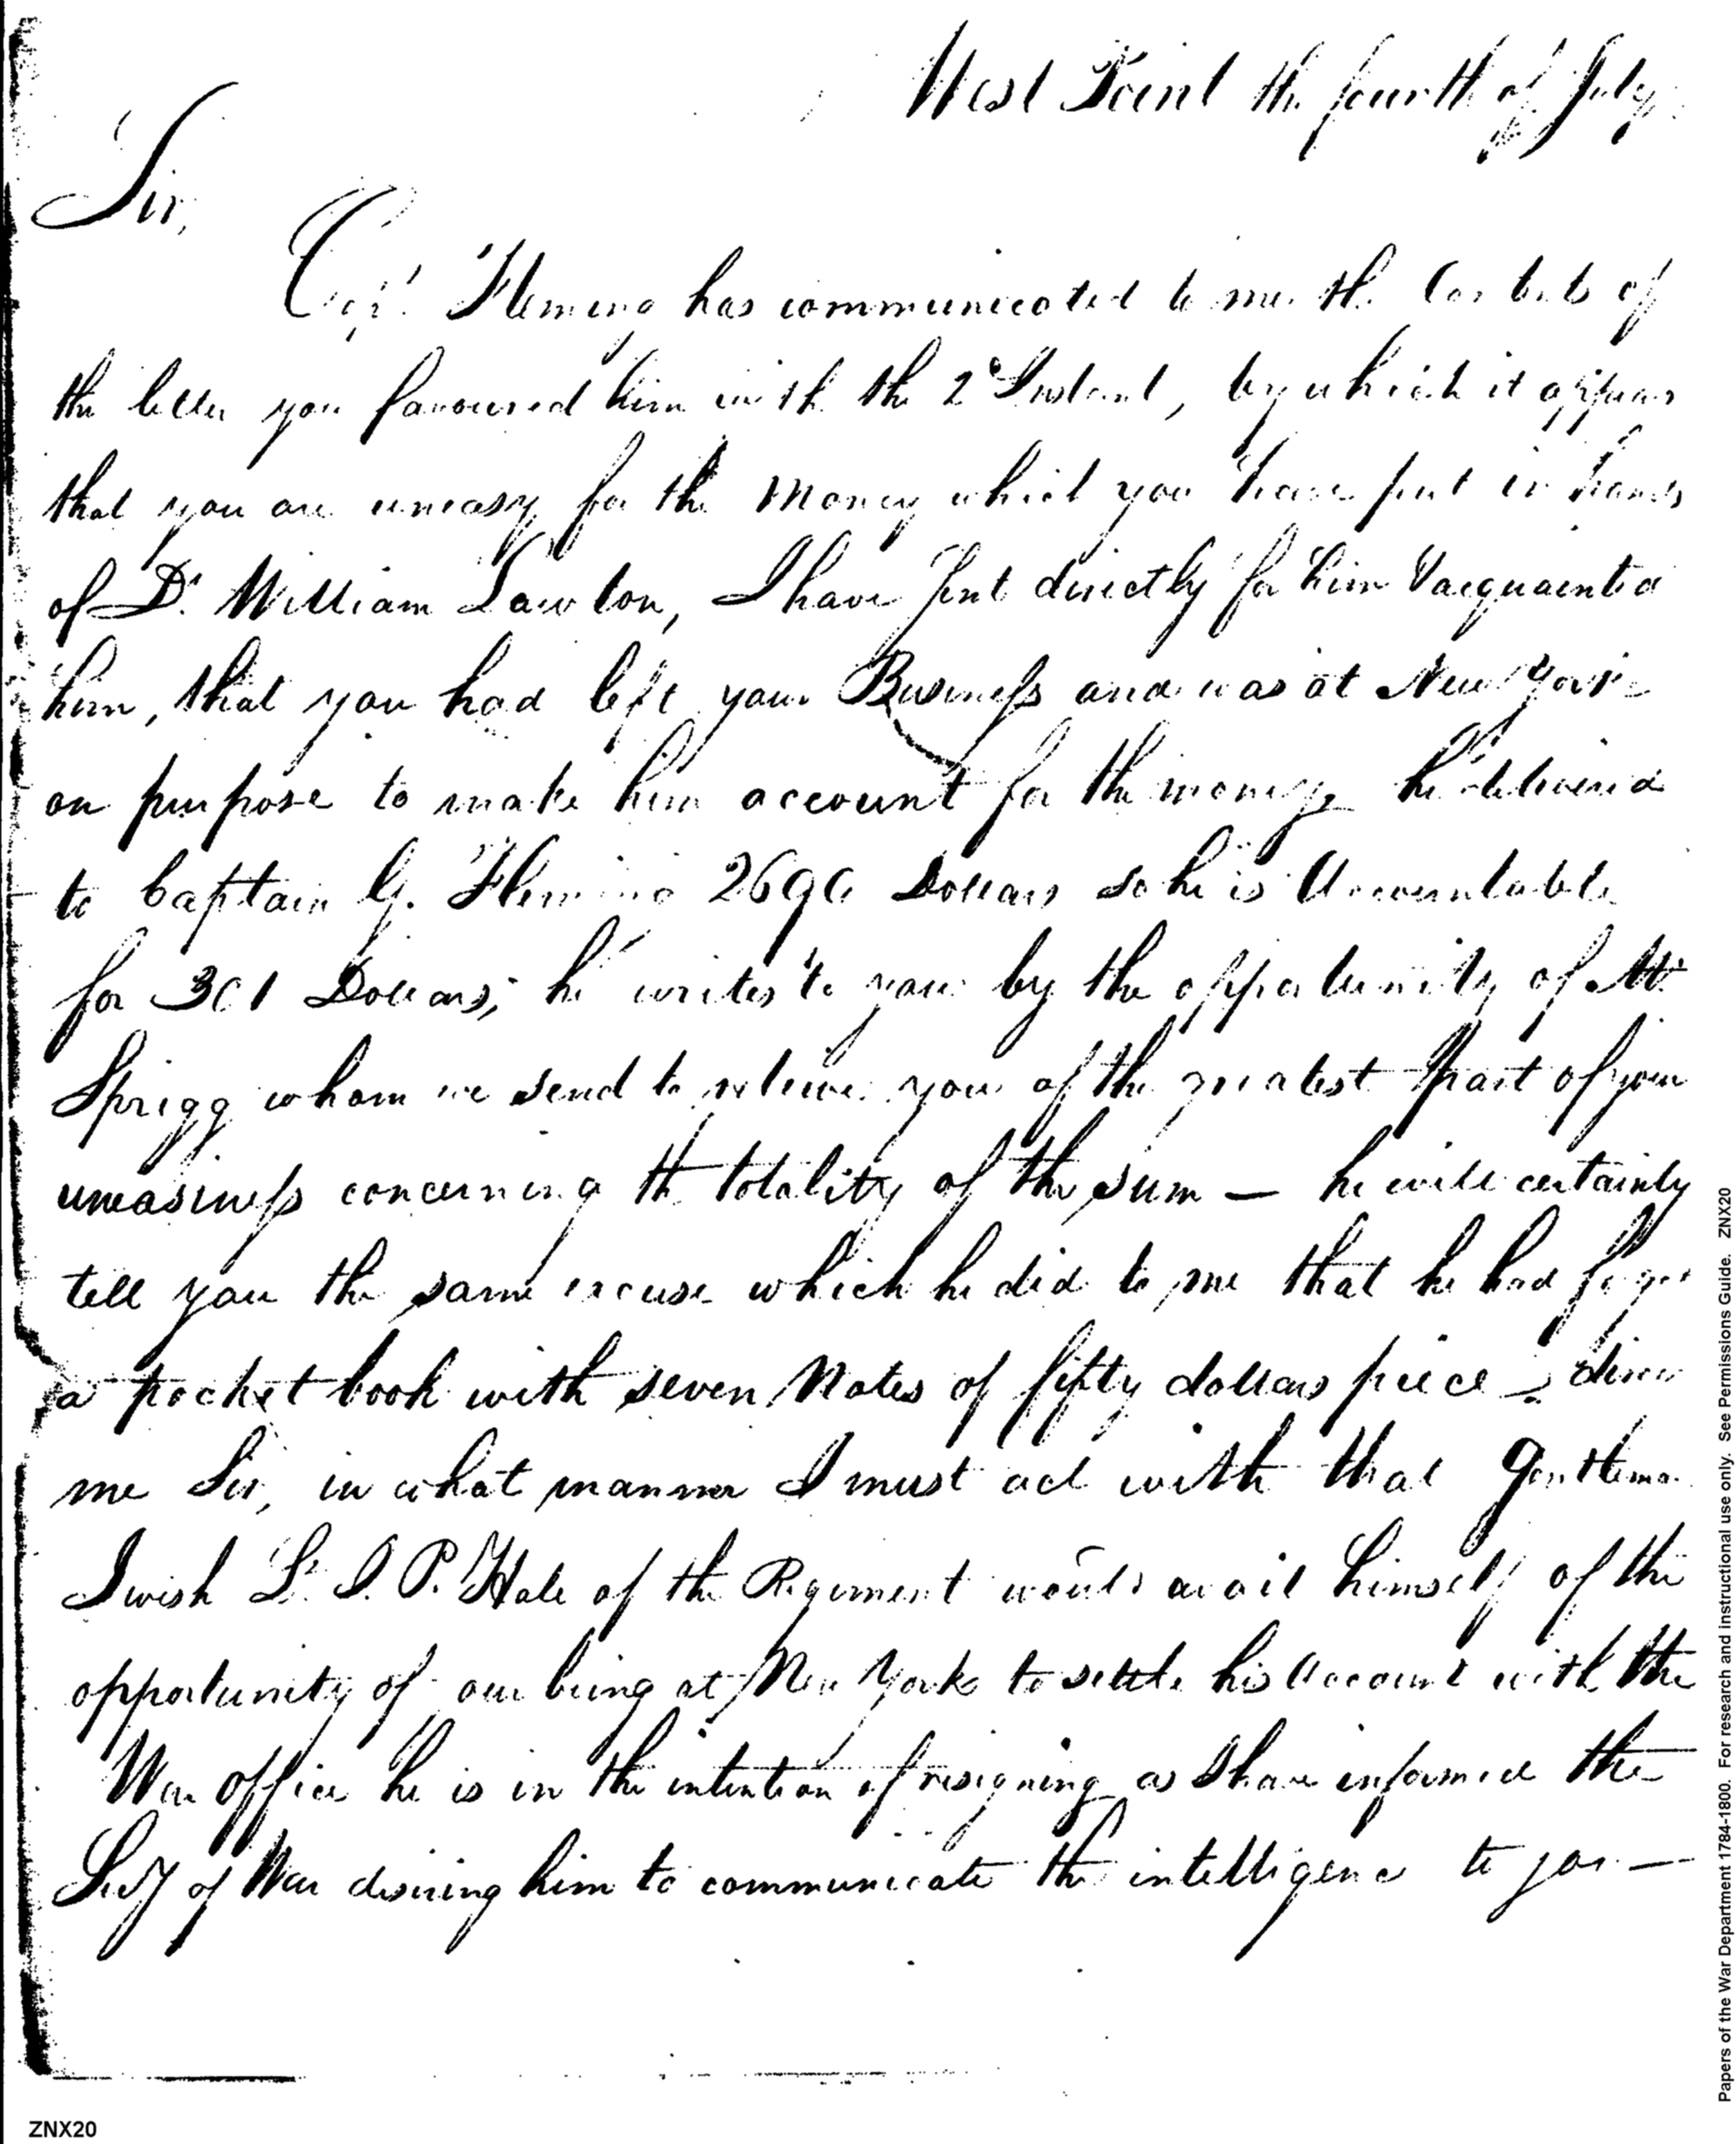 West Point the fourth of July
Sir,
Capt. Fleming has communicated to me the Contents of
the letter you favoured him with the 2d Instant, by which it appears
that you are uneasy for the Money which you have put in hands
of Dr. William Lawton, I have sent directly for him & acquainted
him, that you had left your Business and was at New York
on purpose to make him account for the money he delivered
to Captain G. Fleming 2696 Dollars so he is Accountable
for 301 Dollars; he writes to you by the opportunity of Mr.
Sprigg whom we send to relieve you of the greatest part of your
uneasiness concerning the totality of the sum — he will certainly
tell you the same excuse which he did to me that he had forgot
a pocket book with seven Notes of fifty dollars piece —
me Sir, in what manner I must act with that Gentleman
I wish Lt. I. P. Hale of the Regiment would avail himself of the
opportunity of our being at New York to settle his Account with the
War office he is in the intention of resigning as I have informed the
Secy of War desiring him to communicate the intelligence to you —
ZNX20
Papers of the War Department 1784-1800. For research and instructional use only. See Permissions Guide. ZNX20